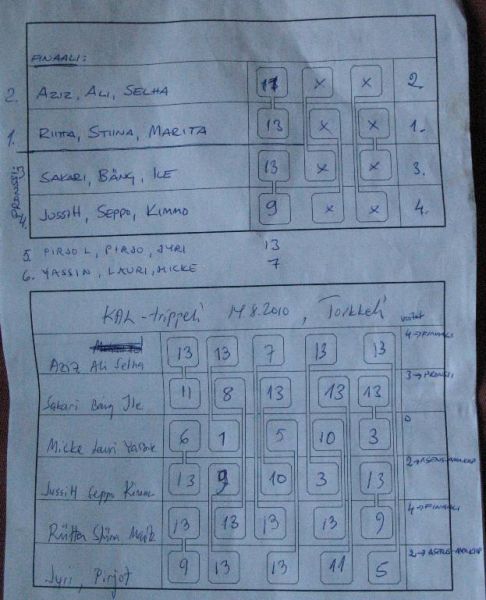 FINAALI:
2. AZIZ, ALI, SELHA 11 x x 2.
1. RIITTA, STIINA, MARITA 13 x x 1.
PRONSSI:
3 SAKARI, BÄNG, ILE 13 x x 3.
4. JUSSIH, SEPPO, KIMMO 9 x x 4.
5. PIRJO L, PIRJO, JYRI 13
6. YASSIN, LAURI, MICKE 7
KAL-trippeli 14.8.2010, Torkkeli voitot
Aziz Ali Selha 13 13 7 13 13 4→FINAALI
Sakari Bäng Ile 11 8 13 13 13 3→PRONSSI
Micke Lauri 6 1 5 10 3 0
JussiH Seppo Kimmo 13 9 10 3 13
Riitta Stiina 13 13 13 13 9 4→FINAALI
Jyri, 9 13 13 11 5